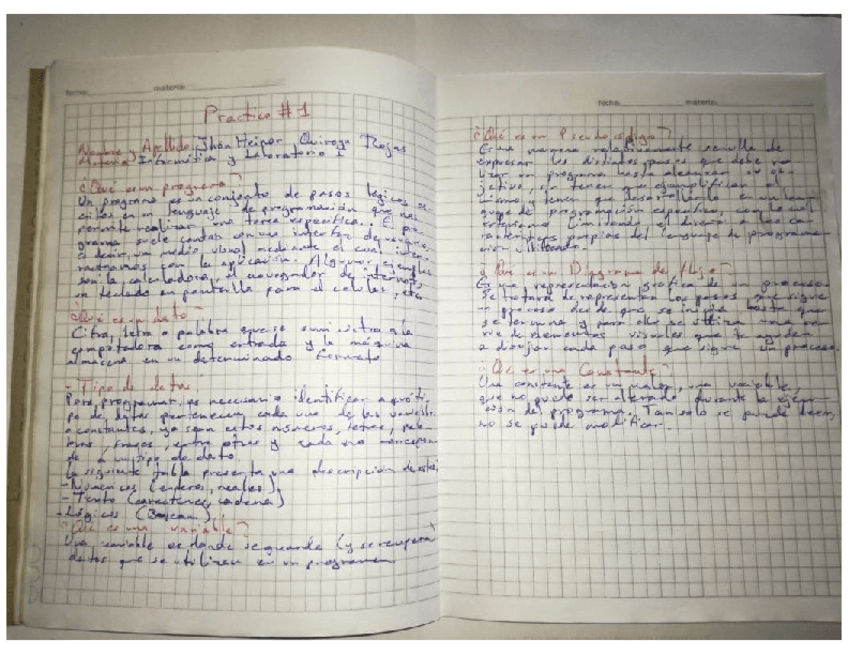 fecha: materia:
Practico #1
Nombre y Apellido: Jhan Heiner Quiroga Rojas
Materia: Informática y Laboratorio I
¿Qué es un programa?
Un programa es un conjunto de pasos lógicos es-
critos en un lenguaje de programación que nos
permite realizar una tarea específica. El pro-
grama suele contar con una interfaz de usuario,
es decir, un medio visual mediante el cual inter-
actuamos con la aplicación. Algunos ejemplos
son la calculadora, el navegador de internet,
un teclado en pantalla para el celular, etc.
¿Qué es un dato?
Cifra, letra o palabra que se suministra a la
computadora como entrada y la máquina
almacena en un determinado formato
- Tipo de datos
Para programar, es necesario identificar a qué ti-
po de datos pertenecen cada una de las variables
o constantes, ya sean estos números, letras, pala-
bras, frases, entre otros y cada
de a un tipo de dato.
La siguiente tabla presenta una descripción de estos:
- Numéricos (enteros, reales)
- Texto (caracteres, cadena)
- Lógicos (Boolean)
¿Qué es una variable?
Una variable es donde se guarda (y se recupera)
datos que se utilizan en un programa
fecha: materia:
¿Qué es un Pseudocódigo?
Es una manera relativamente sencilla de
expresar los distintos pasos que debe rea-
lizar un programa hasta alcanzar su ob-
jetivo, sin tener que ejemplificar el
mismo, y tener que desarrollarlo en un len-
guaje de programación específico, con el cual
limitando el a las ca-
racterísticas propias del lenguaje de programa-
ción utilizado.
¿Qué es un Diagrama de flujo?
Es una representación gráfica de un proceso.
Se tratara de representar los pasos que sigue
un proceso desde que se inicia hasta que
se termina y para ello se utiliza una se-
rie de elementos visuales que te ayuden
a dibujar cada paso que sigue un proceso.
¿Qué es una Constante?
Una constante es un valor, una variable,
que no puede ser alterado durante la ejecu-
ción del programa. Tan solo se puede leer,
no se puede modificar.